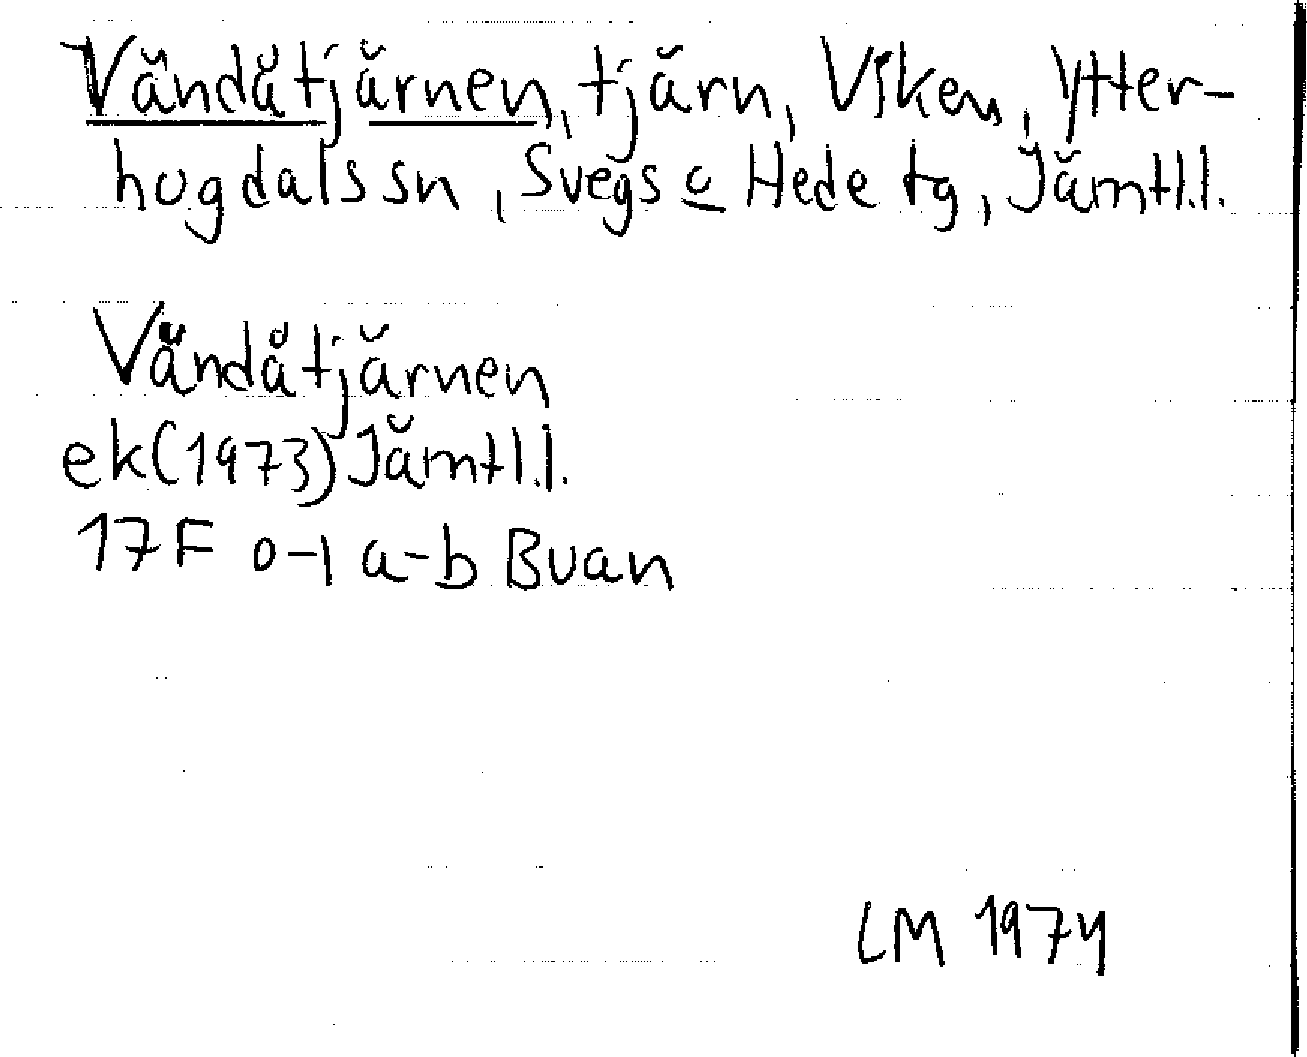 Vändåtjärnen, tjärn, Viken, Ytter-
hogdals sn, Svegs o Hede tg, Jämtl.l.
Vändåtjärnen
ek(1973) Jämtl.l.
17F 0-1 a-b Buan
LM 1974